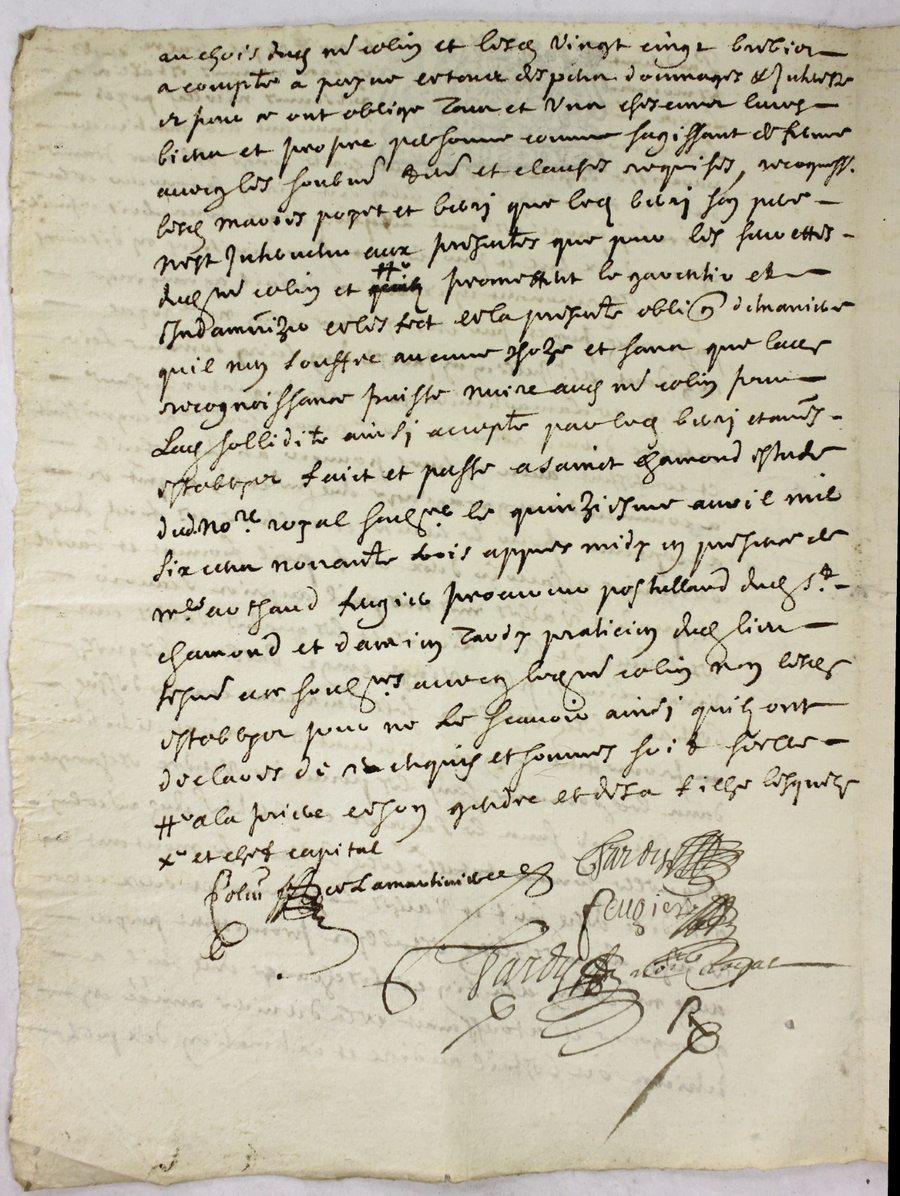 au chois dud mr colin et lesd vingt cinq brebior
a compte a peyne de tous despens dommages & Interestz
et pour ce ont oblige Tous et Uns chescuns leurs
biens et propre personne comme sagissant de ferme
avecq les soubmr et clauses requises, recognoiss.
lesd maries popet et berj que led berj son pere
nest Intervenu aux presentes que pour les
dud mr colin et promettent le garentir et
Indamnizer de leffect de la presente oblion de maniere
quil nen souffre aucune chose et sans que lade
recognoissance puisse nuire aud mr colin pour
lad sollidite ainsi accepte par led berj et
establyes faict et passe a sainct chamond estude
dud. Nore royal soubsne le quinziesme avril mil
six cens nonante trois appres midy en presence de
mres feugier procureur postulland dud St.
chamond et tardy praticien dud lieu
tesmr cy soubsnes avecq led mr colin non lesds
establyes pour ne le scavoir ainsi quilz ont
declares de ce enquis et sommes soit
a la priere de son gendre et de sa fille lesquelz
xr et chef capital
Colin de Lamartiniere
Tardy
feugier
Tardy nore royal